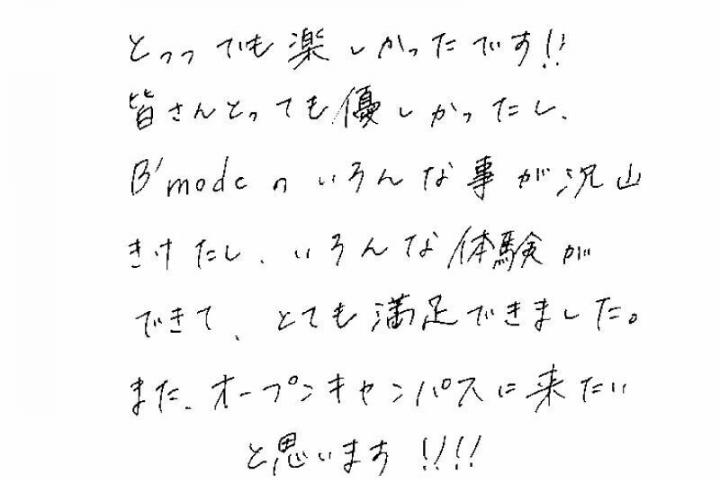 とっっても楽しかったです!!
皆さんとっても優しかったし、
B'modeのいろんな事が沢山
きけたし、いろんな体験が
できて、とても満足できました。
また、オープンキャンパスに来たい
と思います!!!!